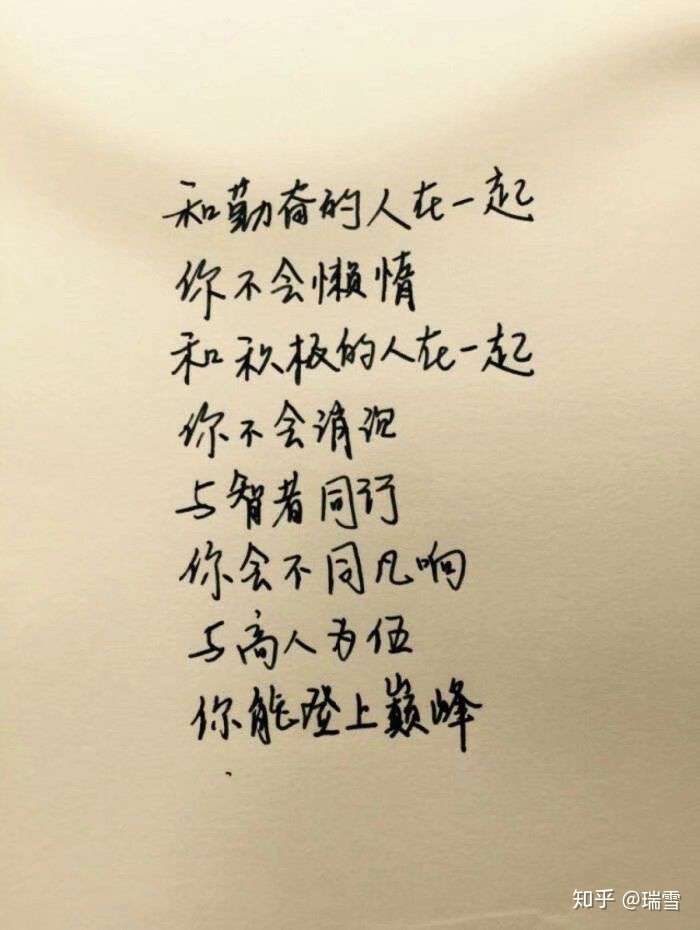 和勤奋的人在一起
你不会懒惰
和积极的人在一起
你不会消沉
与智者同行
你会不同凡响
与高人为伍
你能登上巅峰
知乎 @瑞雪